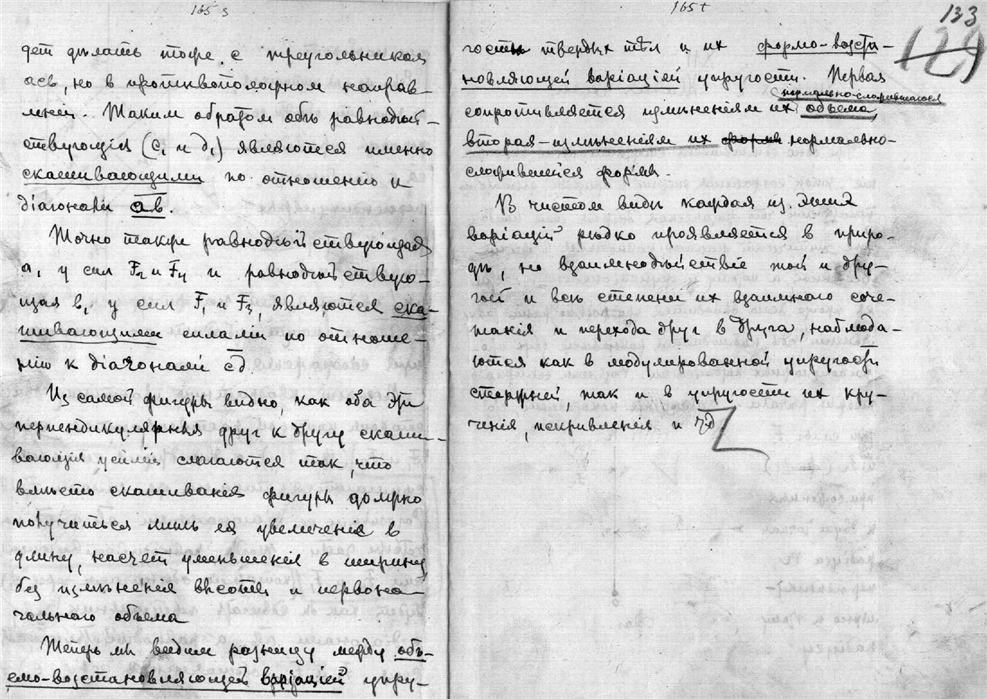 165 s
дет дѣлать тоже с треугольником
асв, но в противоположном направ-
леніи. Таким образом обѣ равнодѣй-
ствующія (с₁ и d₁) являются именно
скашивающими по отношенію к
діагонали ав.
Точно также равнодѣйствующая
а₁ у сил F₂ и F₄ и равнодѣйствую-
щая в₁ у сил F₁ и F₃, являются ска-
шивающими силами по отноше-
нію к діагонали сd.
Из самой фигуры видно, как оба эти
перпендикулярныя друг к другу скаши-
вающія усилія слагаются так, что
вмѣсто скашиванія фигуры должно
получиться лишь ея увеличеніе в
длину, насчет уменьшенія в ширину
без измѣненія высоты и первона-
чальнаго объема
Теперь мы видим разницу между объ-
емо-возстановляющей варіаціей упру-
165 t
133
129
гости твердых тѣл и их формо-возста-
новляющей варіаціей упругости. Первая
сопротивляется измѣненіям их нормально-сложившагося объема,
вторая-измѣненіям их нормально-
сложившейся формы.
В чистом видѣ каждая из этих
варіацій рѣдко проявляется в приро-
дѣ, но взаимнодѣйствіе той и дру-
гой и всѣ степени их взаимнаго соче-
танія и перехода друг в друга, наблюда-
ются как в модулированной упругости
стержней, так и в упругости их кру-
ченія, искривленія и тд